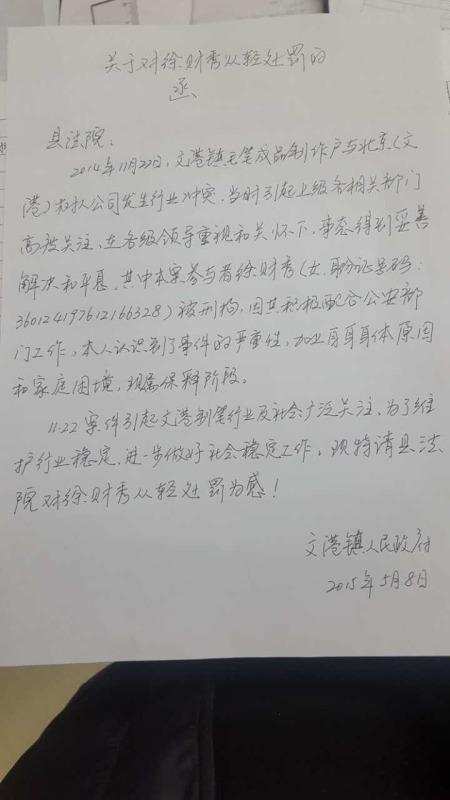 关于对徐财秀从轻处罚的
函
县法院:
2014年11月22日,文港镇毛笔成品制作户与北京(文
港)权拟人公司发生行业冲突,当时引起上级各相关部门
高度关注,在各级领导重视和关怀下,事态得到妥善
解决和平息,其中本案参与者徐财秀(女,身份证号码:
360124197612166328)被刑拘,因其积极配合公安部
门工作,本人认识到了事件的严重性,加上自身身体原因
和家庭困境,现属保释阶段。
11.22案件引起文港制笔行业及社会广泛关注,为了维
护行业稳定,进一步做好社会稳定工作。现特请县法
院对徐财秀从轻处罚为感!
文港镇人民政府
2015年5月8日